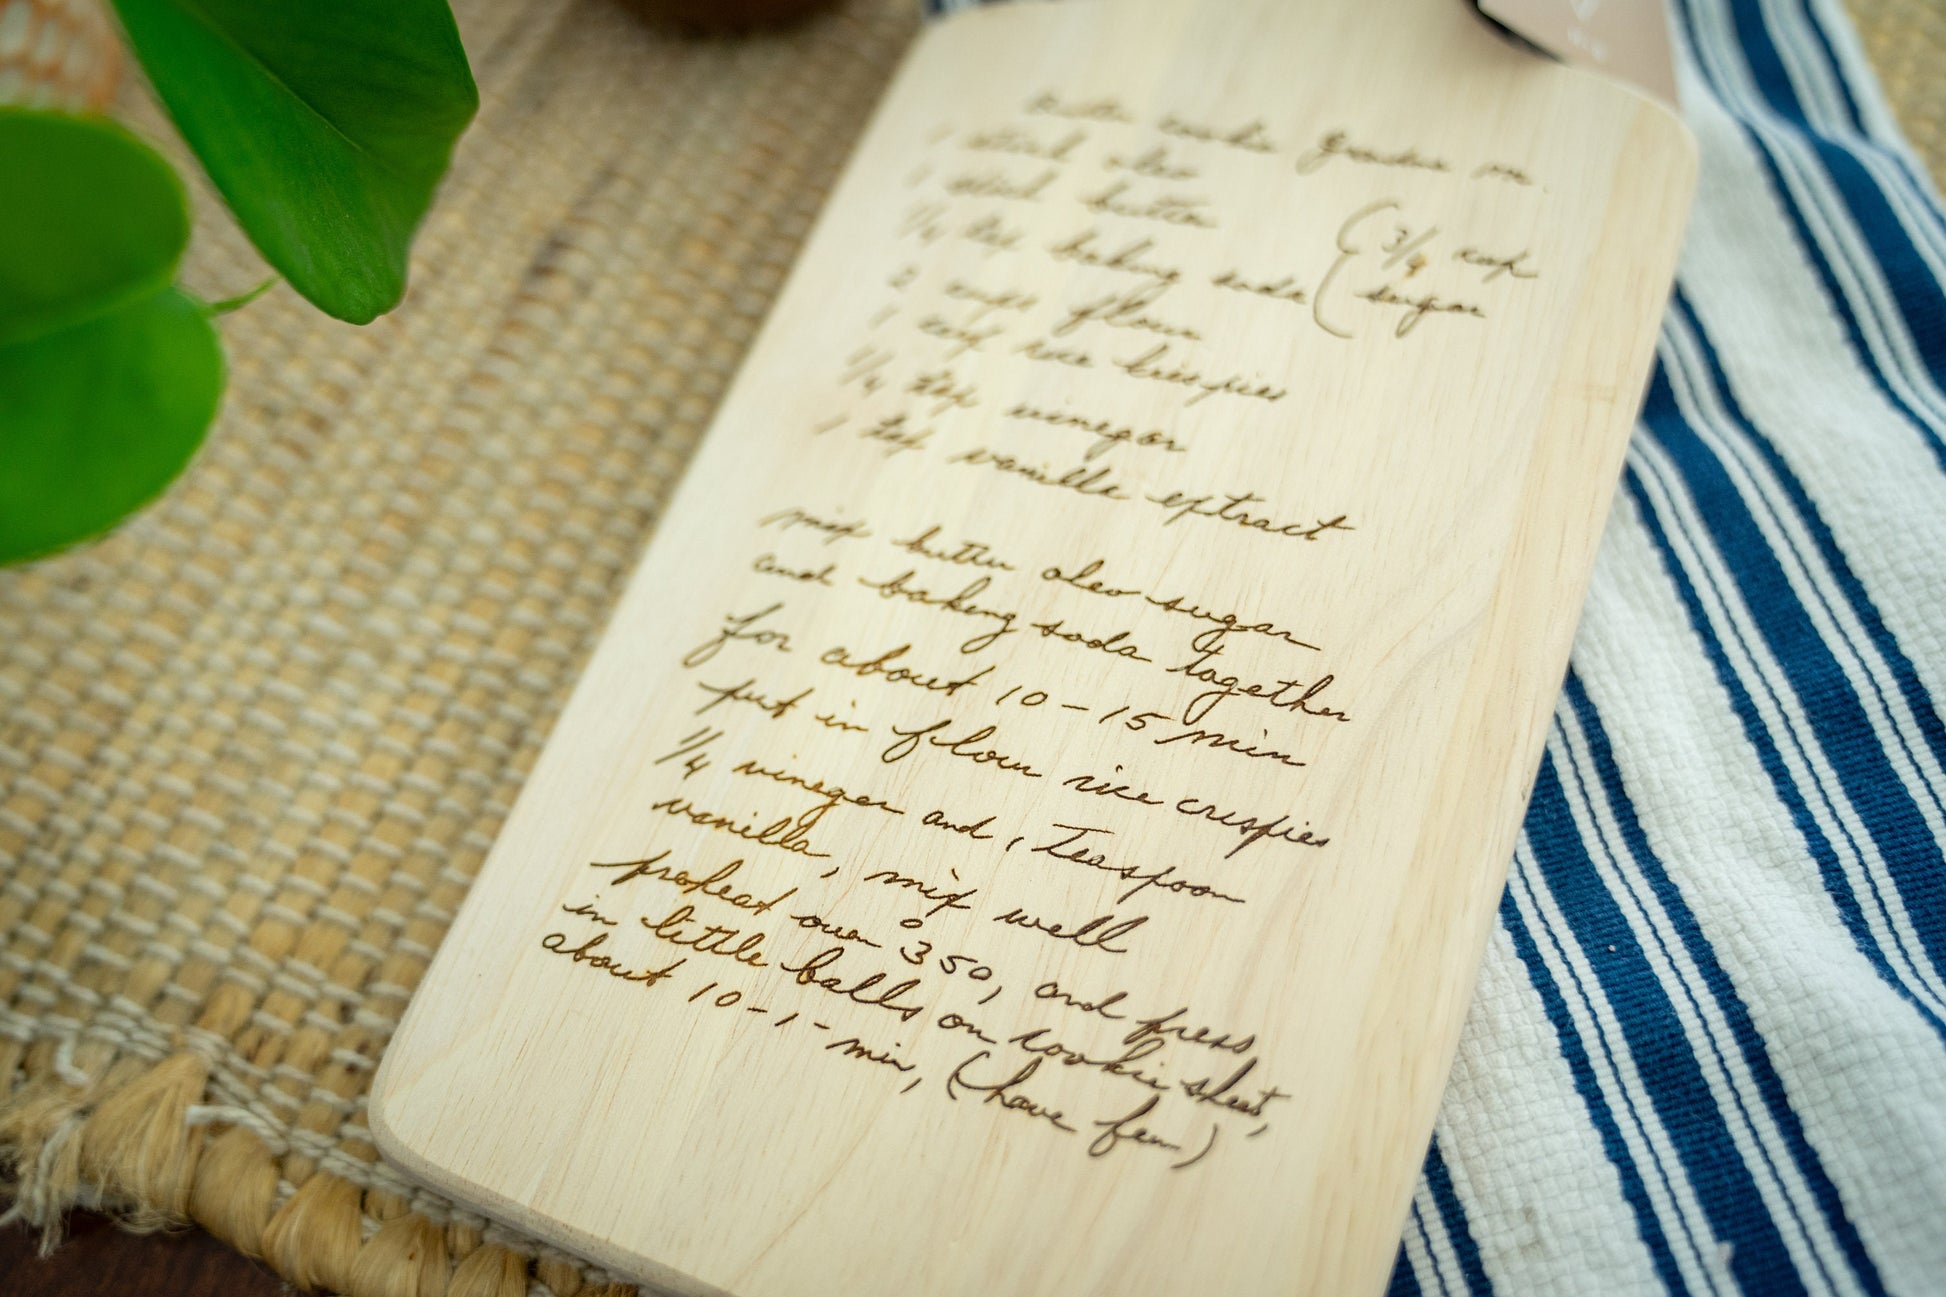 Butter cookie Grandma m.
1 stick oleo
1 stick butter
1/4 tsp baking soda ( 3/4 cup sugar
2 cups flour
1 cup rice krispies
1/4 tsp vinegar
1 tsp vanilla extract
mix butter oleo sugar
and baking soda together
for about 10-15 min
put in flour rice crispies
1/4 vinegar and 1 Teaspoon
vanilla, mix well
preheat oven °350, and press
in little balls on cookie sheet,
about 10-1- min, (have fun)